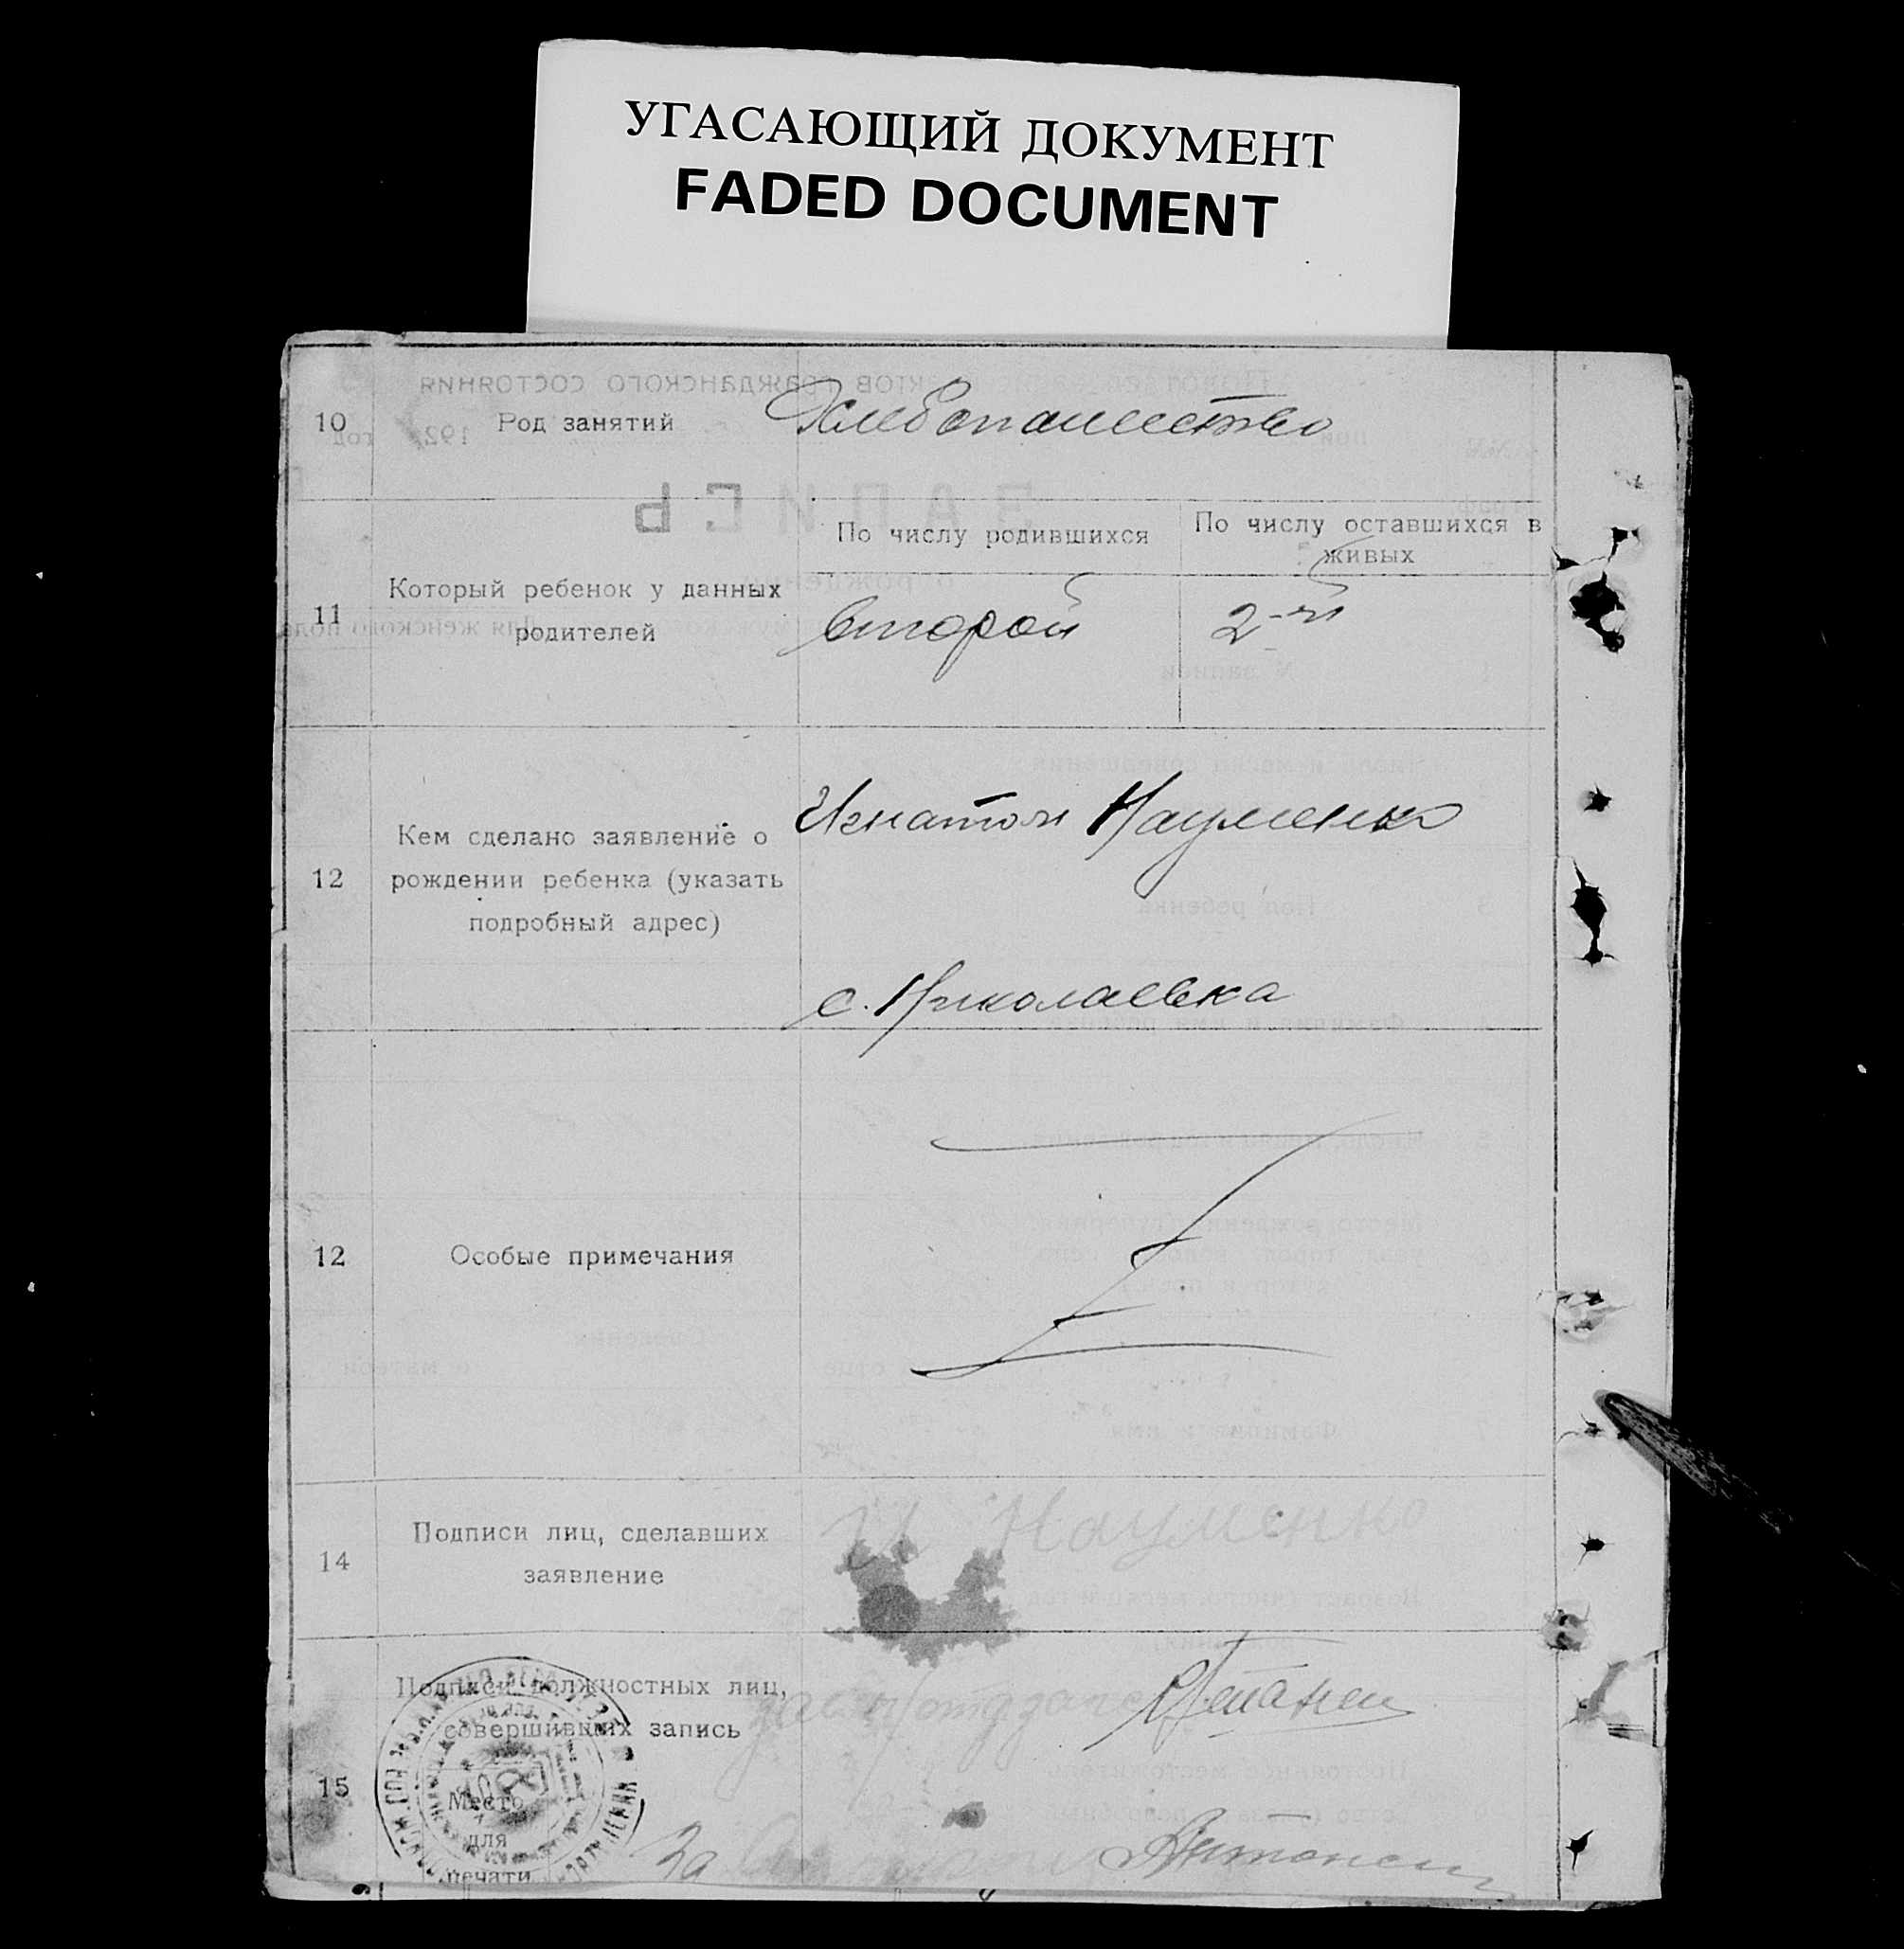 УГАСАЮЩИЙ ДОКУМЕНТ
FADED DOCUMENT
10 Род занятий Хлебопашество
По числу родившихся По числу оставшихся в
живых
Который ребенок у данных
11 родителей второй 2-й
Игнатом Науменко
Кем сделано заявление о
12 рождении ребенка (указать
подробный адрес)
с. Николаевка
12 Особые примечания
И Науменко
Подписи лиц, сделавших
14 заявление
Подписи должностных лиц,
совершивших запись
15 Место
для
печати
За